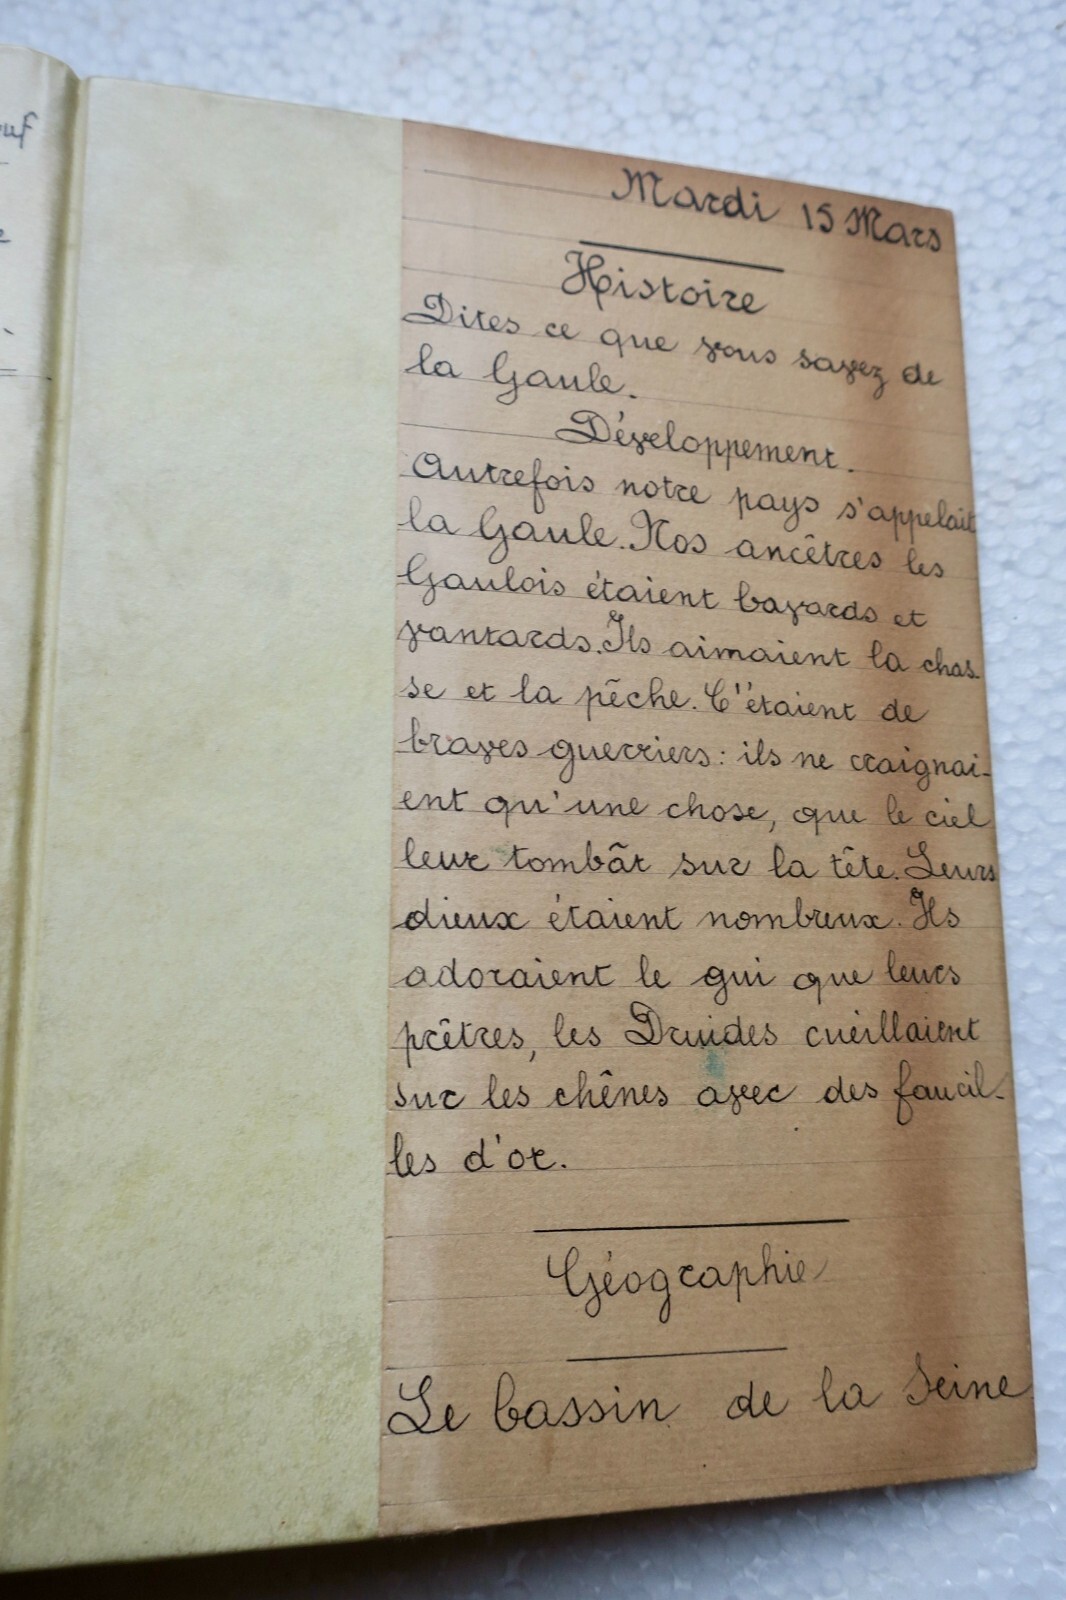 Mardi 15 Mars
Histoire
Dites ce que vous savez de
la Gaule.
Développement.
Autrefois notre pays s'appelait
la Gaule. Nos ancêtres les
Gaulois étaient bavards et
vantards. Ils aimaient la chas-
se et la pêche. C'étaient de
braves guerriers : ils ne craignai-
ent qu'une chose, que le ciel
leur tombât sur la tête. Leurs
dieux étaient nombreux. Ils
adoraient le gui que leurs
prêtres, les Druides cueillaient
sur les chênes avec des faucil-
les d'or.
Géographie
Le bassin de la Seine